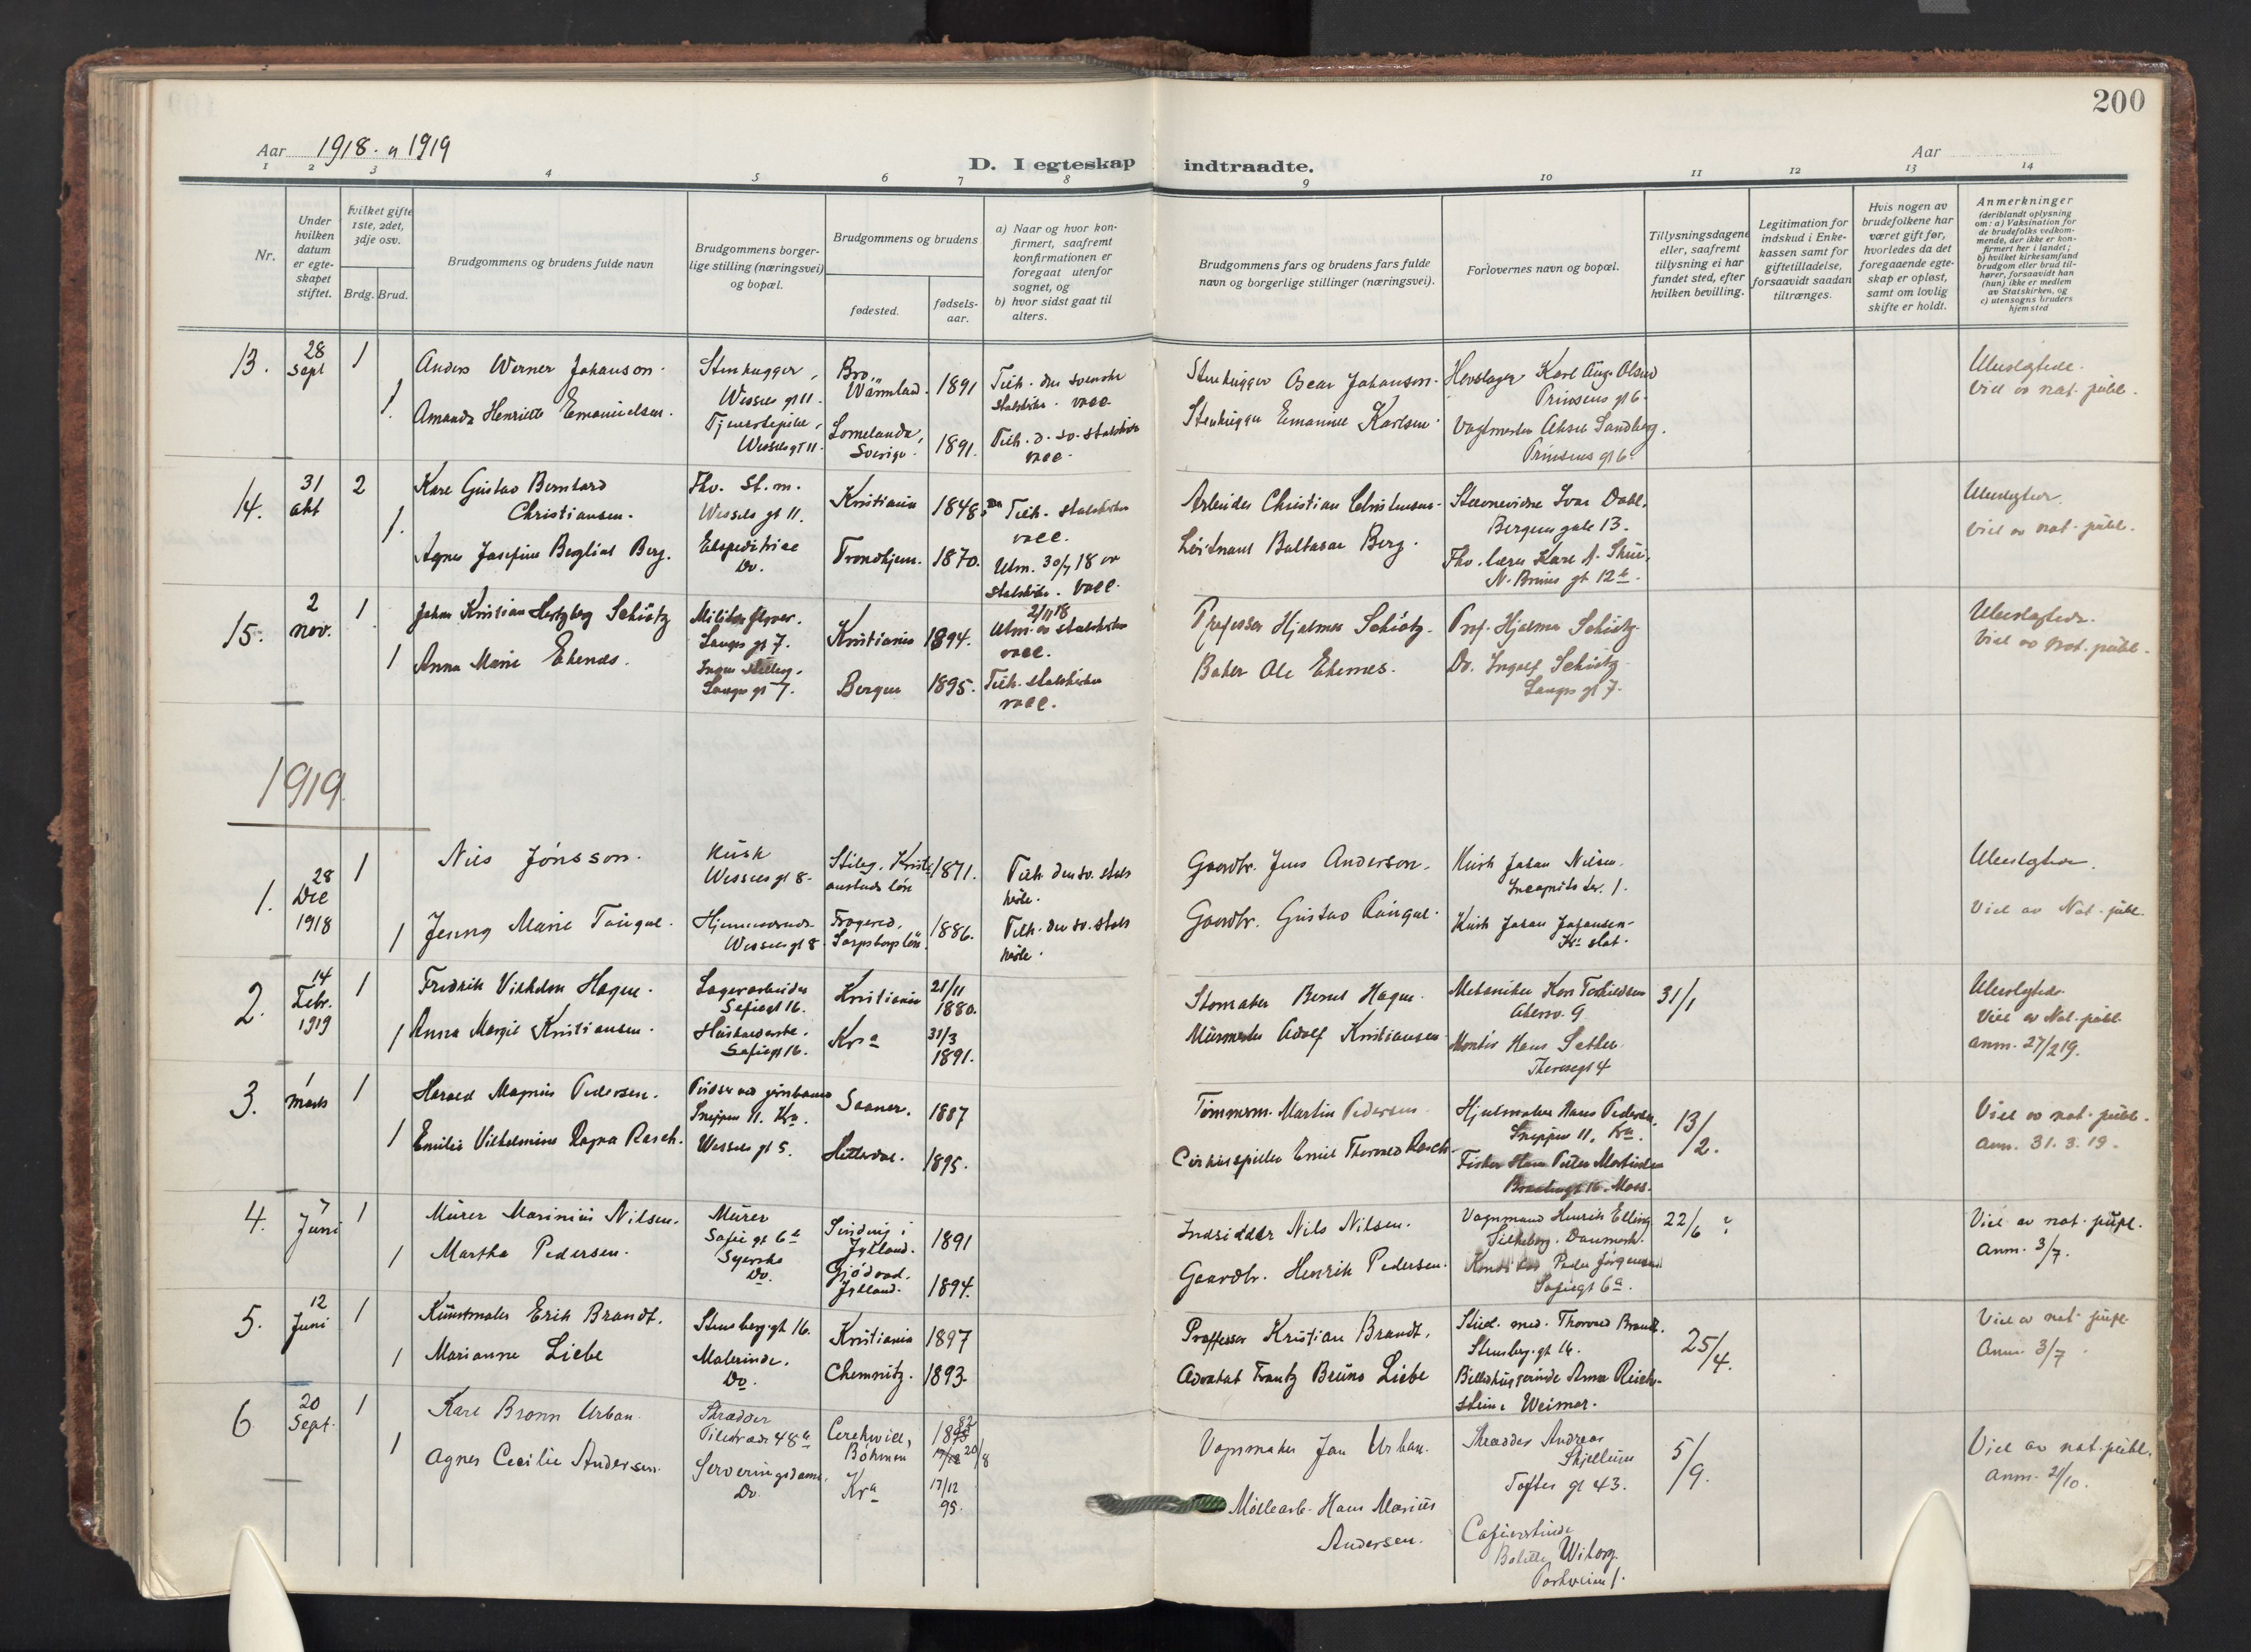 200
Aar 1918. " 1919
D. I egteskap indtraadte.
Aar
1 2 3 4 5 6 7 8 9 10 11 12 13 14
Nr.
Under hvilken datum er egteskapet stiftet.
Hvilket gifte 1ste, 2det, 3dje osv.
Brdg. Brud.
Brudgommens og brudens fulde navn
Brudgommens borgerlige stilling (næringsvei) og bopæl.
Brudgommens og brudens
fødested.
fødselsaar.
a) Naar og hvor konfirmert, saafremt konfirmationen er foregaat utenfor sognet, og
b) hvor sidst gaat til alters.
Brudgommens fars og brudens fars fulde navn og borgerlige stillinger (næringsvei).
Forlovernes navn og bopæl.
Tillysningsdagene eller, saafremt tillysning ei har fundet sted, efter hvilken bevilling.
Legitimation for indskud i Enkekassen samt for giftetilladelse, forsaavidt saadan tiltrænges.
Hvis nogen av brudefolkene har været gift før, hvorledes da det foregaaende egteskap er opløst, samt om lovlig skifte er holdt.
Anmerkninger
(deriblandt oplysning om: a) Vaksination for de brudefolks vedkommende, der ikke er konfirmert her i landet; b) hvilket kirkesamfund brudgom eller brud tilhører, forsaavidt han (hun) ikke er medlem av Statskirken, og c) utensogns bruders hjemsted
13. 28 Sept 1 Anders Werner Johanson. Stenhugger, Wessels gt 11. Bro, Wärmland. 1891 Tilh. den svenske statskirke. vacc. Stenhugger Oscar Johanson. Hovslager Karl Aug. Olsen Prinsens gt 6. Ubeslegtede. Viet av not. publ.
1. Amanda Henriette Emanuelsen. Tjenestepike, Wessels gt 11. Sverige. 1891. Tilh. d. sv. statskirke vacc. Stenhugger Emanuel Karlsen. Vagtmester Aksel Sandberg. Prinsens gt 6.
14. 31 okt 2 Karl Gustav Bernhard Christiansen. Fhv. St. m. Wessels gt 11. Kristiania 1848. Tilh. statskirken vacc. Arbeider Christian Christensen. Stevnevidne Ivar Dahl. Bergens gate 13. Ubeslegtet. Viet av not. publ.
1. Agnes Josefine Bergliot Berg. Ekspeditrice Do. Trondhjem. 1870. Utm. 30/7 18 av statskirke. vacc. Løitnant Baltasar Berg. Fhv. lærer Karl A. N. Bruns gt 12 b.
15. 2 nov. 1 Johan Kristian Hertzberg Schiøtz Militærflyver. Langes gt 7. Kristiania 1894. 2/11 18 Utm. av statskirken vacc. Professor Hjalmar Schiøtz. Prof. Hjalmar Schiøtz Ubeslegtede. Viet av not. publ.
1 Anna Marie Ekenæs. Ingen stilling. Langes gt 7. Bergen 1895. Tilh. statskirken vacc. Baker Ole Ekenæs. Dr. Ingolf Schiøtz Langes gt 7.
1919
1. 28 Dec 1918 1 Nils Jönsson. Kusk Wessels gt 8. 1871. Tilh. den sv. stats kirke. Gaardbr. Jens Anderson. Kusk Johan Nilsen. Incognito ter. 1. Ubeslegtede. Viet av Not. publ.
1 Jenny Marie Hjemmeværende Wessels gt 8. 1886. Tilh. den sv. stats kirke. Gaardbr. Gustav Kusk Johan Johansen. Kr. slot.
2. 14 Febr. 1919 1 Fredrik Vilhelm Hagen. Lagerarbeider Sofiesgt 16. Kristiania 21/11 1880. Skomaker Bernt Hagen. Mekaniker Karl Torkildsen Akersv. 9 31/1 Ubeslegtede. Viet av Not. publ. anm. 27/2 19.
1 Anna Margit Kristiansen. Husholderske. Sofiesgt 16. Kra 31/3 1891. Murmester Adolf Kristiansen Montør Hans Sether Theresesgt 4
3. 1 marts 1 Harald Magnus Pedersen. Pudser ved jernbanen Sneppen 11. Kra. Saaner. 1887 Tømmerm. Martin Pedersen. Hjulmaker Hans Pedersen. Sneppen 11. Kra. 13/2. Viet av not. publ. anm. 31. 3. 19.
1 Emilie Vilhelmine Ragna Rasch. Wessels gt 5. Hitterdal. 1895. Cirkusspiller Emil Thorvald Rasch. Fisker Peter Martinsen Moss.
4. 7 Juni 1 Murer Marinius Nilsen. Murer Sofie gt 6 a Sinding i Jylland. 1891 Indsidder Nils Nilsen. Vognmand Henrik Elling Silkeborg. Danmark. 22/6 ? Viet av not. publ. Anm. 3/7.
1 Martha Pedersen. Syerske Do. Gjødvad. Jylland. 1894. Gaardbr. Henrik Pedersen. Peder Jørgensen Sofiegt 6 a.
5. 12 Juni 1 Kunstmaler Erik Brandt. Stensberggt 16. Kristiania 1897 Proffessor Kristian Brandt. Stud. med. Thorvald Brandt. Stensberg. gt 16. 25/4. Viet av not. publ. Anm. 3/7.
1 Marianne Liebe Malerinde. Do. Chemnitz. 1893. Advokat Frantz Bruno Liebe Billedhuggerinde Anna Reichstein. Weimar.
6 20 Sept. 1 Karl Bronn Urban. Skrædder Pilestræde 48 b Cerekwitz, Böhmen 1882 20/8 Vognmaker Jan Urban. Skrædder Andreas Skjellum Toftes gt 43. 5/9. Viet av not. publ. Anm. 21/10.
1 Agnes Cecilie Andersen. Serveringsdame. Do. Kra 17/12 95. Møllearb. Hans Marius Andersen. Casiererinde Bolette Wiborg. Parkveien 1.